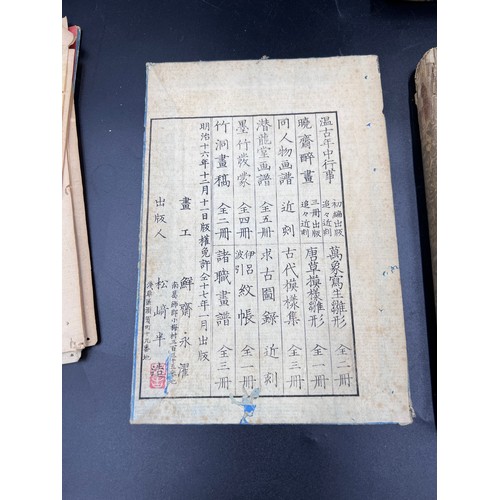 温古年中行事 初編出版 追々近刻 萬象寫生雛形 全二冊
曉齋醉畫 三冊出版 追々近刻 唐草模様雛形 全一冊
同人物画譜 近刻 古代模様集 全三冊
潜龍堂画譜 全五冊 求古圖録 近刻
墨竹發蒙 全四冊 伊呂波引 紋帳 全一冊
竹洞畫稿 全二冊 諸職畫譜 全三冊
明治十六年十二月十一日版權免許 仝十七年一月出版
畫工 鮮齋永濯
南葛飾郡小梅村
出版人 松﨑半造